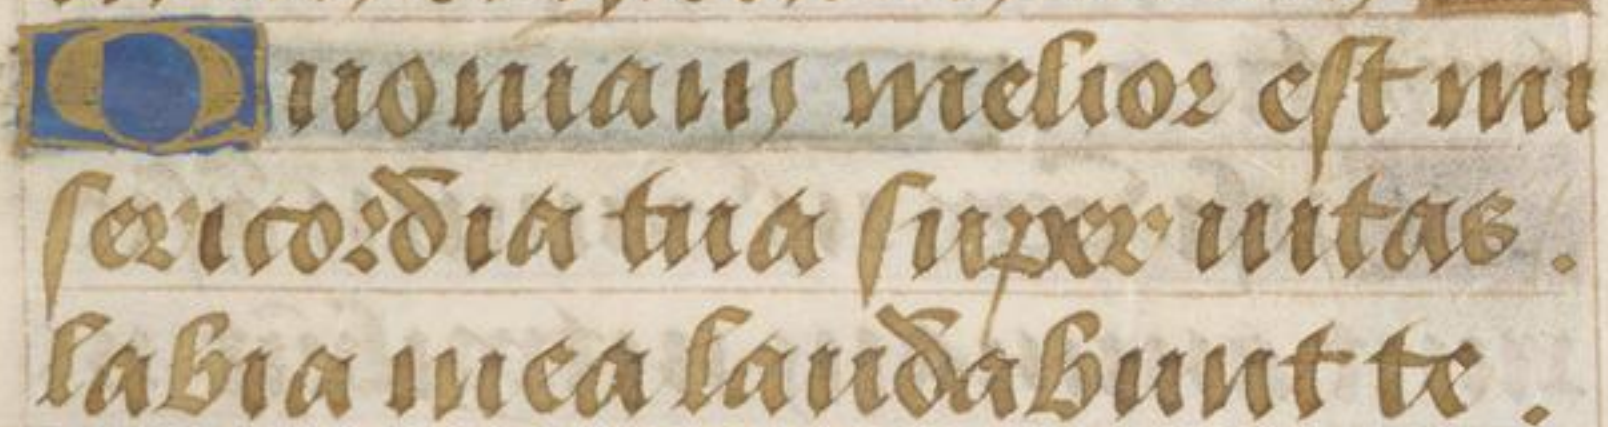 Quoniam melior est mi
sericordia tua super uitas .
labia mea laudabunt te .